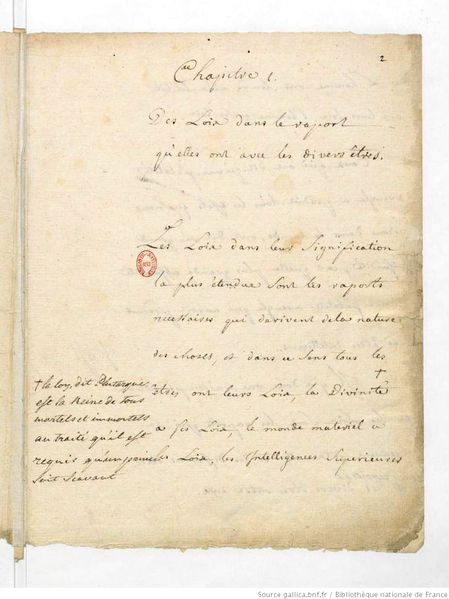 2
Chapitre 1.
Des Loix dans le raport
qu'elles ont avec les divers êtres.
Les Loix dans leur Signification
la plus etendue sont les raports
necessaires qui darivent de la nature
des choses, et dans ce sens tous les
êtres ont leurs Loix, la Divinité
a ses Loix, le monde materiel a
ses Loix, les Intelligences Superieures
+ la loy, dit Plutarque
est la Reine de tous
mortels et immortels
au traité qu'il est
requis qu'un prince
soit scavant
Source gallica.bnf.fr / Bibliothèque nationale de France